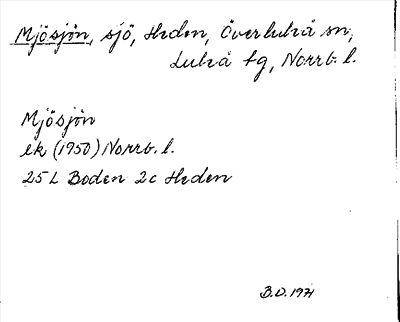 Mjösjön, sjö, Heden, Överluleå sn,
Luleå tg, Norrb. l.
Mjösjön
ek (1950) Norrb. l.
25 L Boden 2c Heden
B.O. 1971